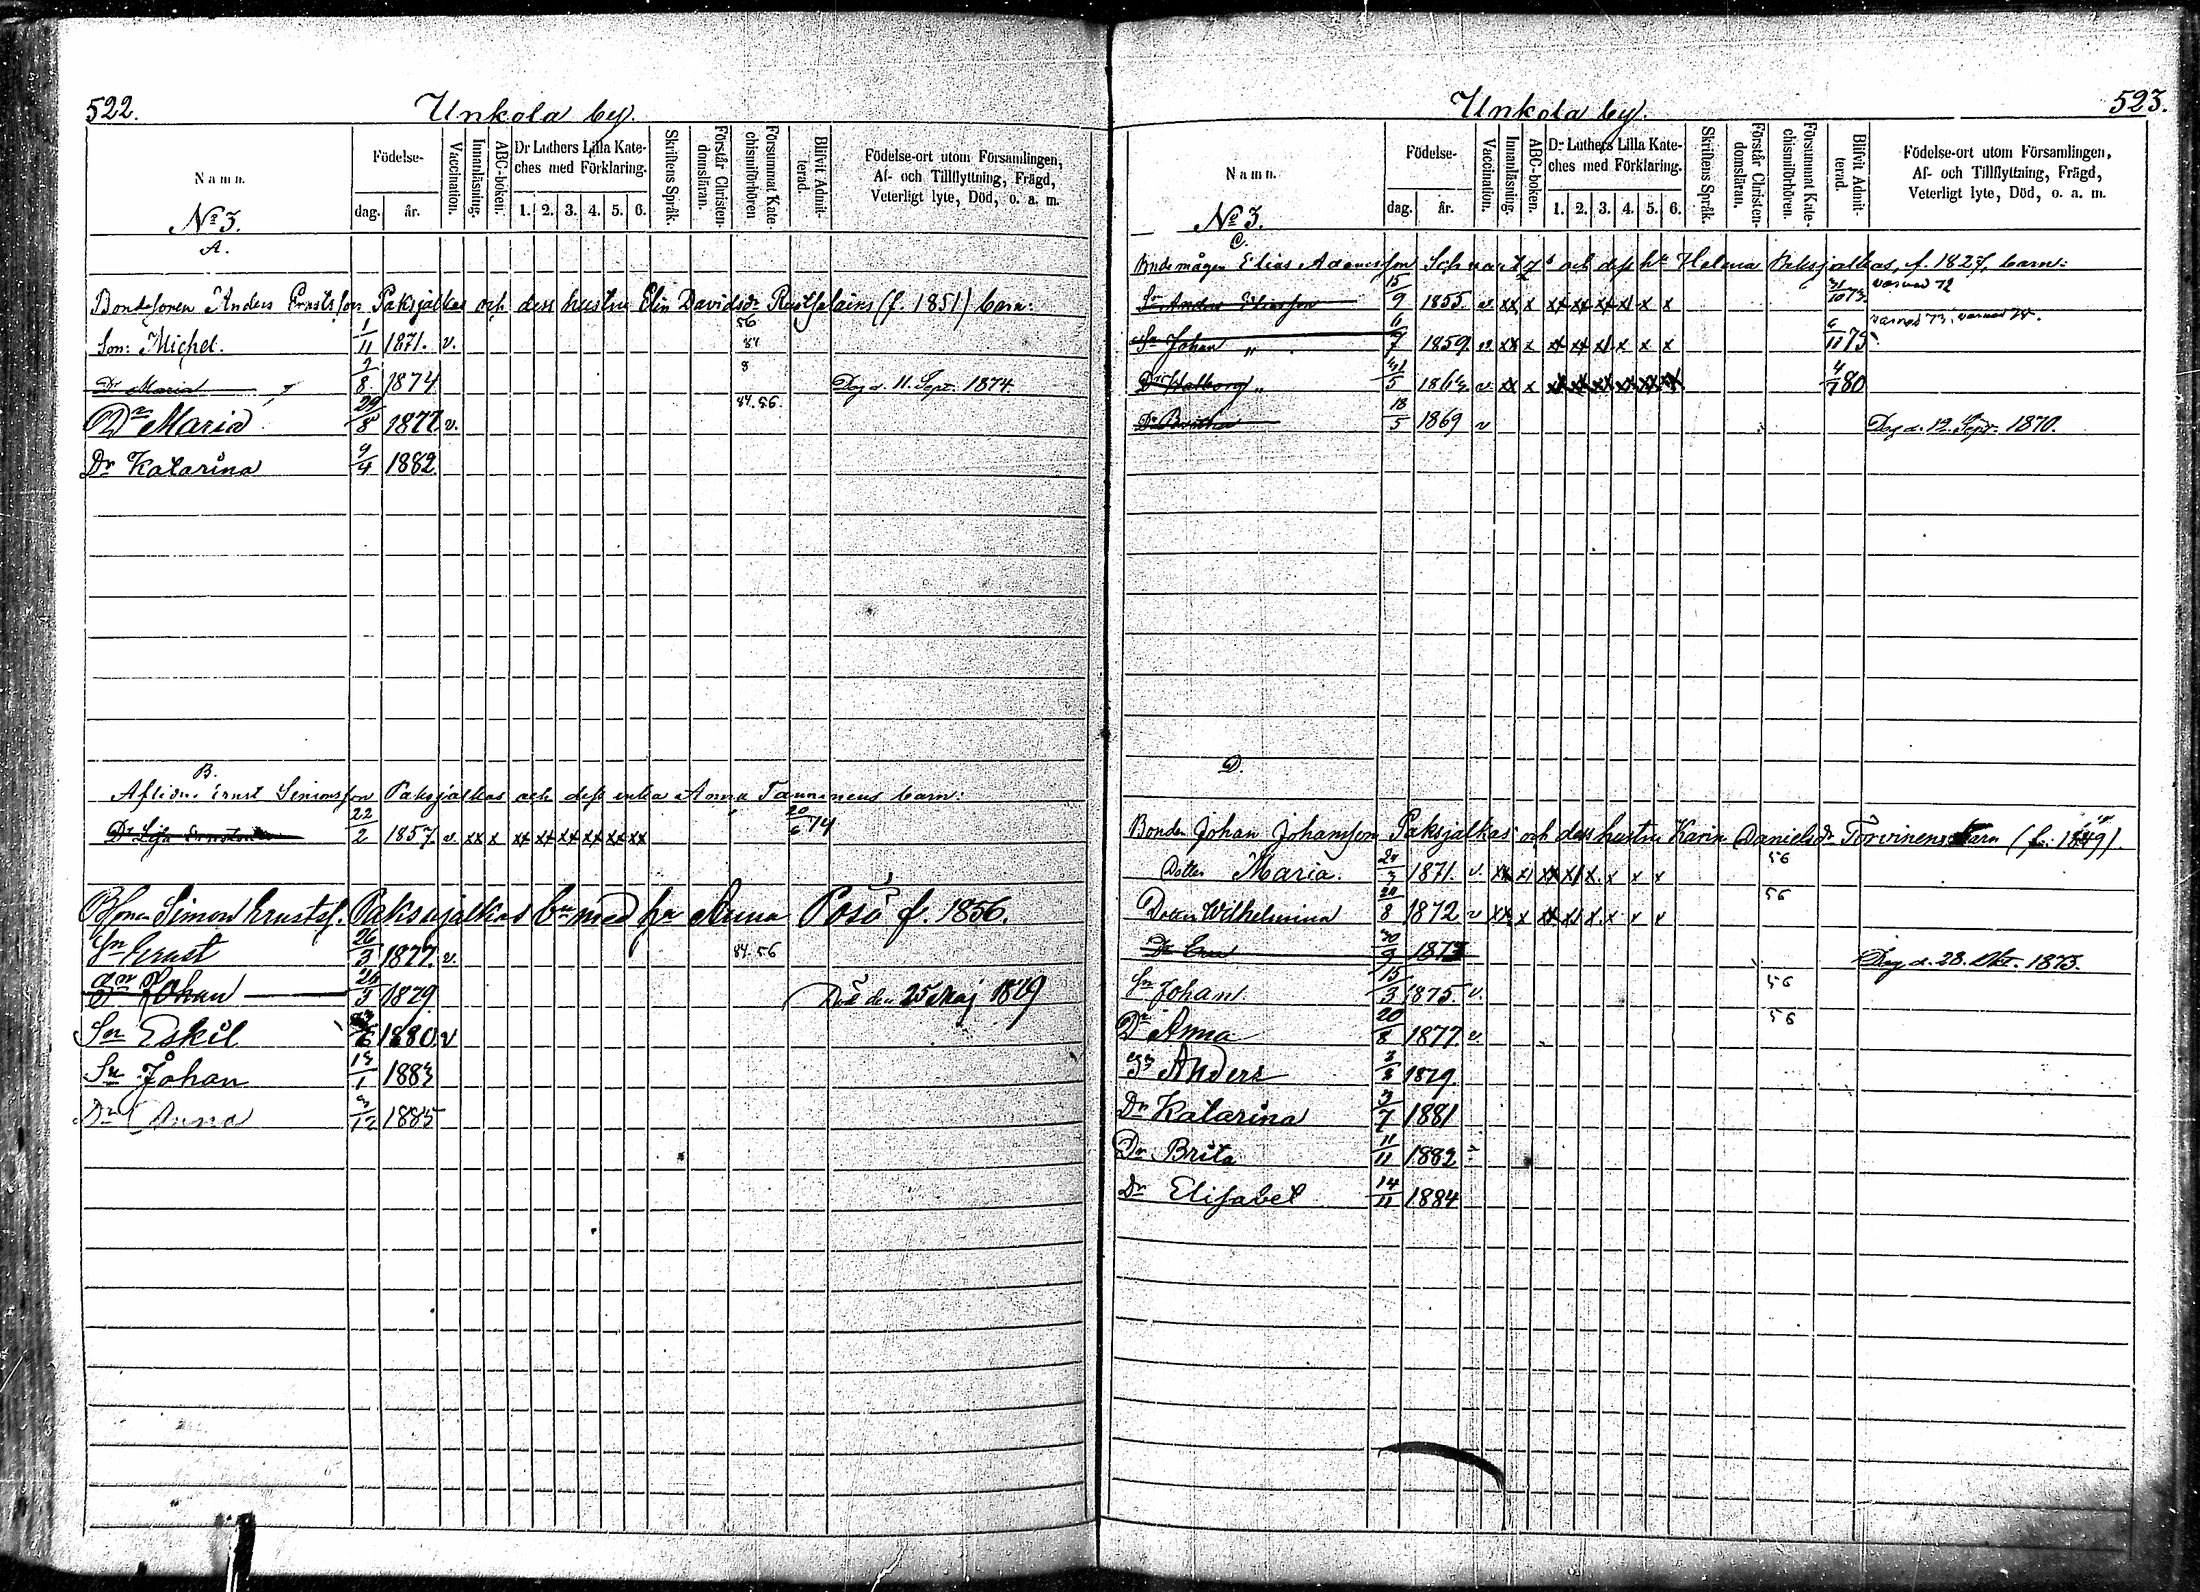 522.
Unkola by.
Namn.
Födelse-
dag.
år.
Vaccination.
Innanläsning.
ABC-boken.
Dr Luthers Lilla Kate-
ches med Förklaring.
1. 2. 3. 4. 5. 6.
Skriftens Språk.
Förstår Christen-
domsläran.
Försummat Kate-
chismiförhören
Blifvit Admit-
terad.
Födelse-ort utom Församlingen,
Af- och Tillflyttning, Frägd,
Veterligt lyte, Död, o. a. m.
No 3.
A.
Bondesonen Anders Ernstsson Paksjalkas och dess hustru Elin Davidsdr (f. 1851) barn:
Son: Michel. 1/11 1871. v. 56 84
Dr Maria 2/8 1874 8 Dog d. 11. Sept. 1874.
Dr Maria 29/8 1877. v. 84. 56
Dr Katarina 9/4 1882
B.
Aflidne Ernst Simonsson Paksjalkas och dess enka Anna Tanninens barn:
Dr Lisa 22/2 1857. v. xx x xx xx xx xx xx xx 20/6 74
Bsonen Simon Ernstsf. Paksujalkas bn med hu Anna Posio f. 1856.
Sn Ernst 26/3 1877. v. 84. 56
Sn Johan 1879. Död den 25 Maj 1879
Sn Eskil 1880 v
Sn Johan 13/1 1883
Dr Anna 3/12 1885
523.
Unkola by.
Namn.
Födelse-
dag.
år.
Vaccination.
Innanläsning.
ABC-boken.
Dr Luthers Lilla Kate-
ches med Förklaring.
1. 2. 3. 4. 5. 6.
Skriftens Språk.
Förstår Christen-
domsläran.
Försummat Kate-
chismiförhören.
Blifvit Admit-
terad.
Födelse-ort utom Församlingen,
Af- och Tillflyttning, Frägd,
Veterligt lyte, Död, o. a. m.
No 3.
C.
Bondemågen Elias Adamsson och dess hu Helena Paksjalkas, f. 1827, barn:
Sn Anders Eliasson 15/9 1855. v. xx x xx xx xx x x x 31/10 73. varnad 72
Sn Johan " 6/7 1859 v xx x xx xx x x x x 6/11 75. varnad 73. varnad 74.
Dr Walborg " 21/5 v. xx x xx xx xx xx xx xx 4/7 80
Dr 18/5 1869 v Dog d. 12. Sept. 1870.
D.
Bonden Johan Johansson Paksjalkas och dess hustru Karin Danielsdr Torvinens barn
Dotter Maria. 1871. v. xx x xx x x. x x x 56
Dotter Wilhelmina 1872 v xx x xx x x. x x x 56
Dr 30/9 1873 Dog d. 28. Okt. 1873.
Sn Johan. 15/3 1875. v. 56
Dr Anna 20/8 1877. v. 56
Sn Anders 1879.
Dr Katarina 3/7 1881
Dr Brita 11/11 1882
Dr Elisabet 14/11 1884